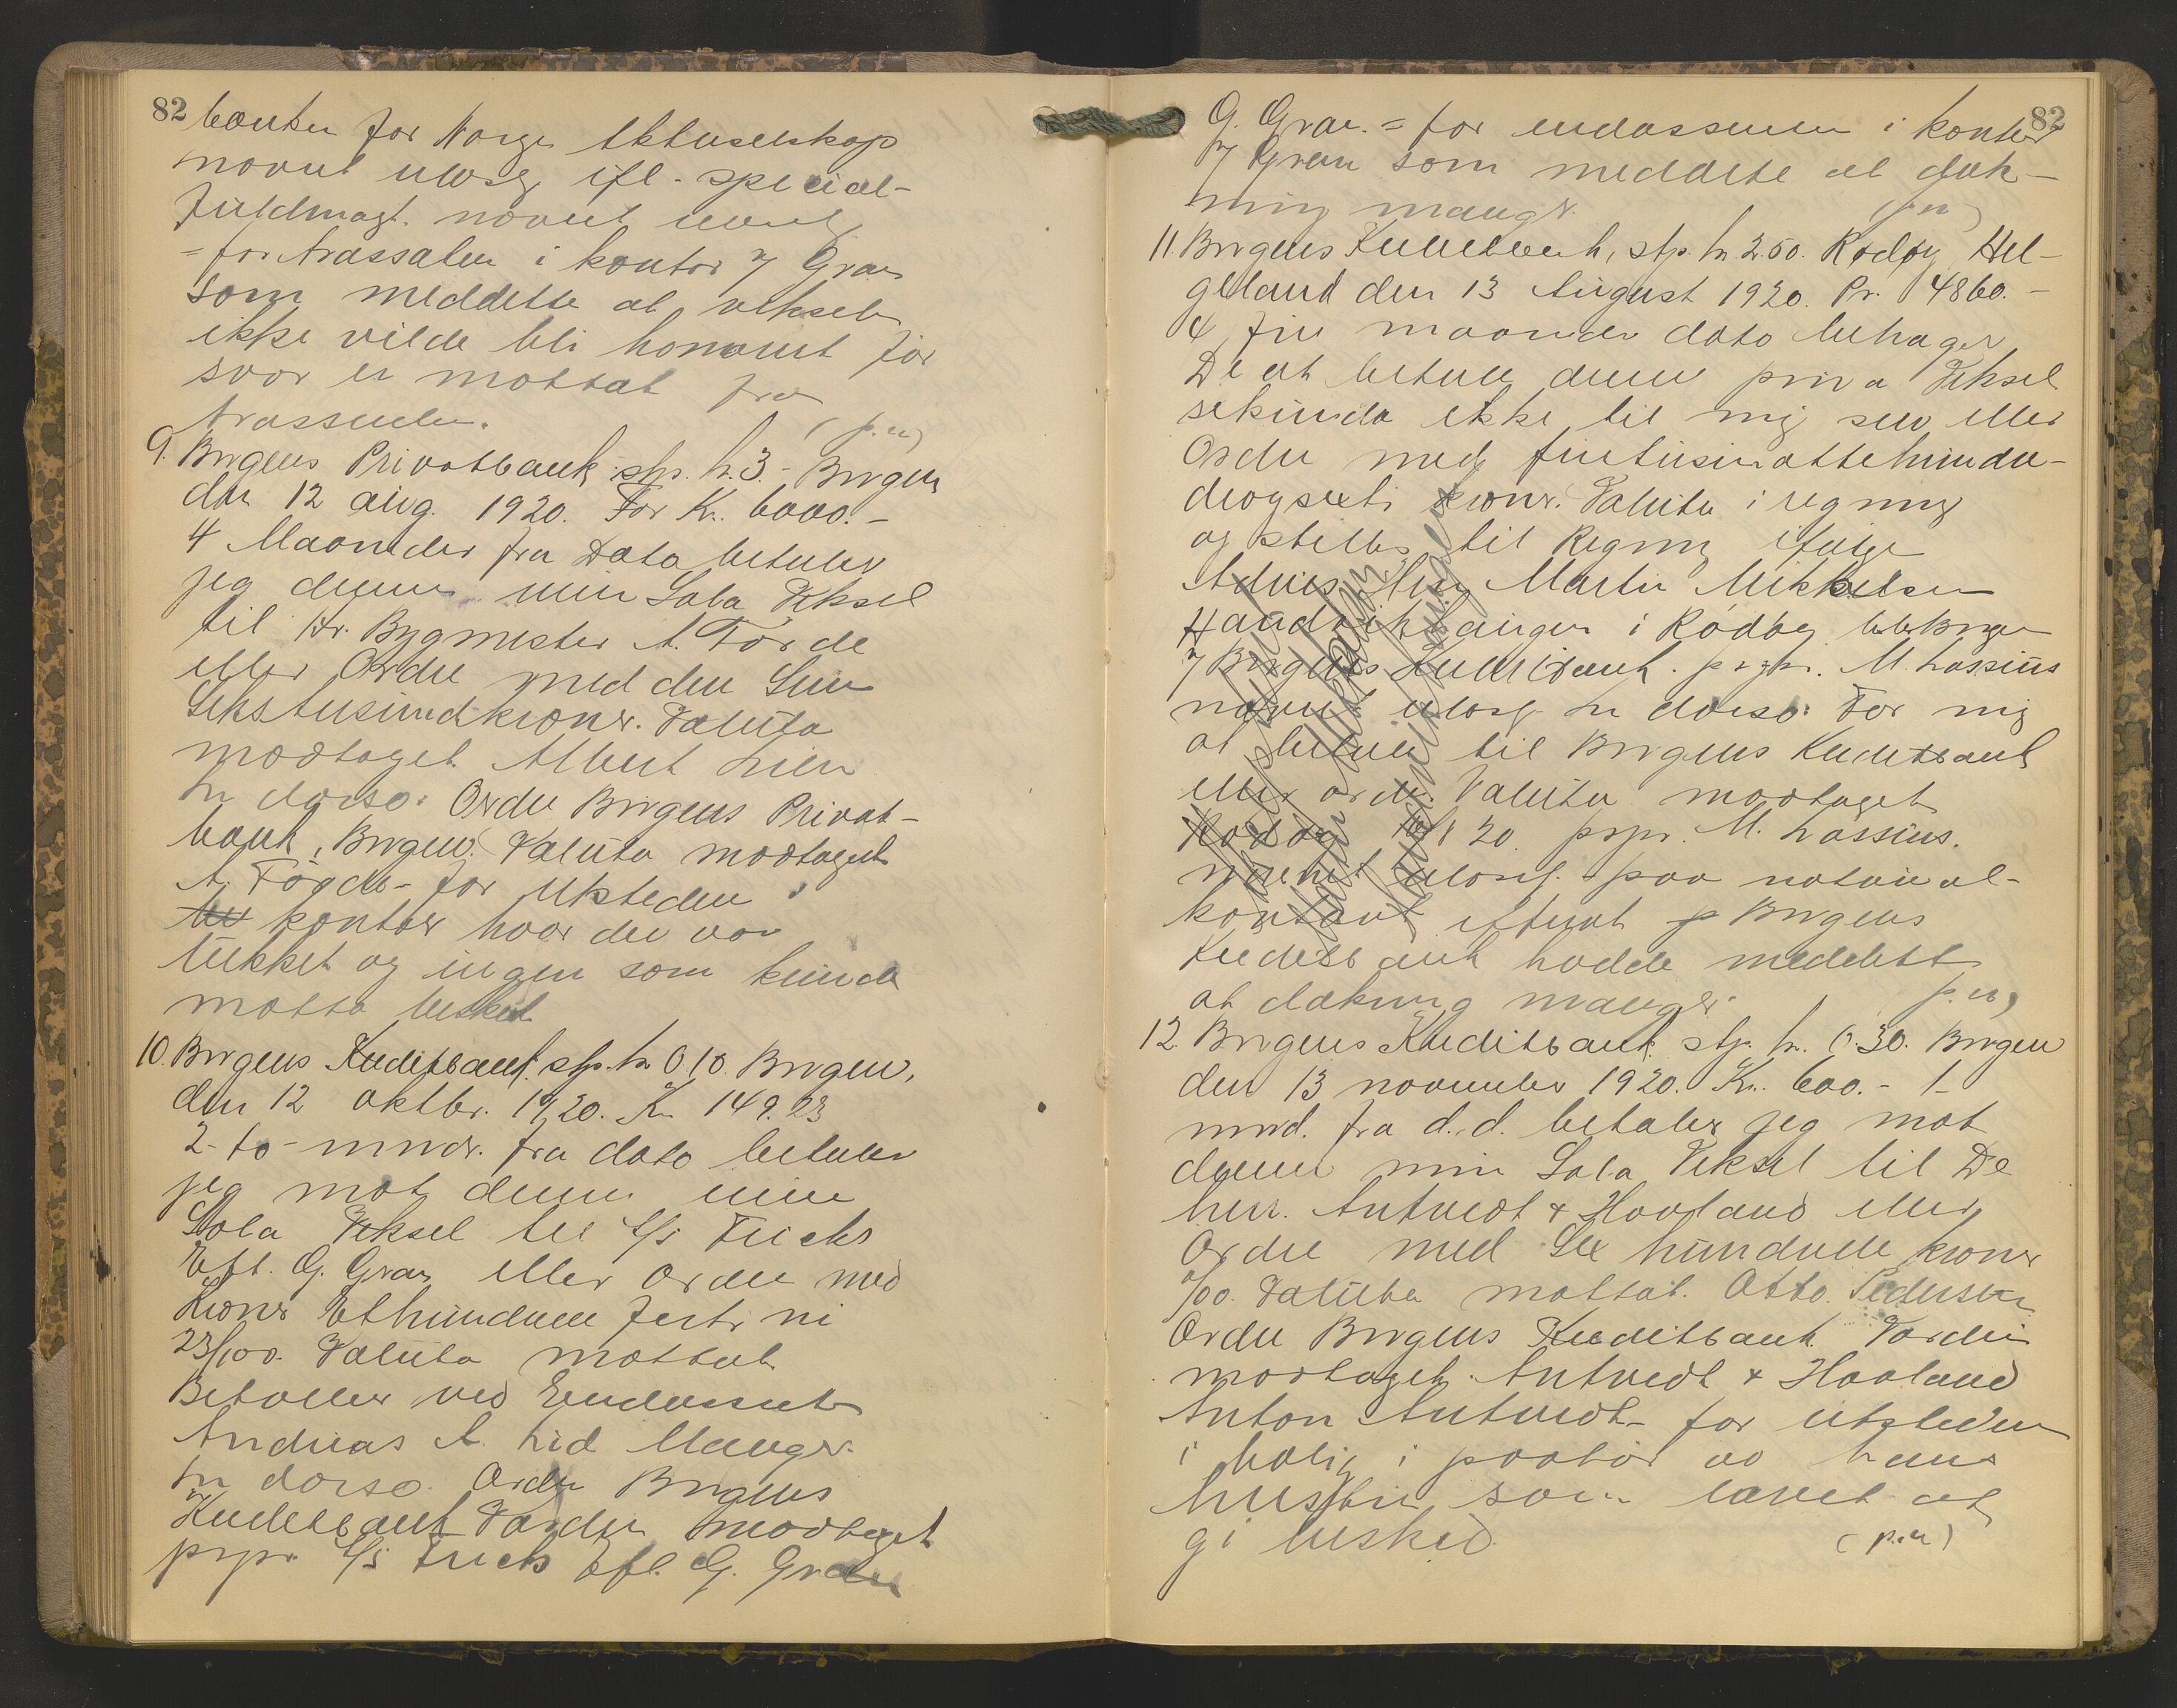 82
banken for Norge Aktieselskap
navnet ulæsl. ifl. special-
fuldmagt. navnet ulæsl.
= for trassaten i kontor v/ Gran
som meddelte at vekselen
ikke vilde bli honoreret før
svar er mottat fra
trassenten. (p.u)
9. Bergens Privatbank stp. kr. 3.- Bergen
den 12 aug. 1920. For Kr. 6000.-
4 Maaneder fra Dato betaler
jeg denne min Sola Veksel
til Hr. Bygmester A. Förde
eller Ordre med den Sum
Sekstusindkroner. Valuta
modtaget. Albert Lien
In dorso: Ordre Bergens Privat-
bank, Bergen. Valuta modtaget
A. Förde - for utstederen i
kontor hvor der var
lukket og ingen som kunde
motta besked
10. Bergens Kreditbank. stp. kr 0.10. Bergen,
den 12 oktbr. 1920. Kr 149.23
2 - to - mndr. fra dato betaler
jeg mot denne min
Sola Veksel til A/S Fricks
Eft. G. Gran eller Ordre med
Kroner Ethundrede forti ni
23/100. Valuta mottat
Betales ved Endossent
Andreas A. Lid Manger.
In dorso. Ordre Bergens
Kreditbank Værdien modtaget
prpr. A/S Fricks Eft. G. Gran
82
G. Gran. = for endossenten i kontor
v/ Gran som meddelte at dæk-
ning mangler. (p.u)
11. Bergens Kreditbank, stp. kr 2.50. Rodøy, Hel-
geland den 13 August 1920. Pr. 4860.-
4 fire maaneder dato behager
De at betale denne prima Veksel
sekunda ikke til mig selv eller
Ordre med firetusinottehundre-
deogseksti kroner. Valuta i regning
og stilles til Regning ifølge
Advis. Herr Martin Mikkelsen
Haandvik Langen i Rodøy bet. Bergen
v/ Bergens Kreditbank. prpr. M. Lassius
navnet ulæsl. In dorso: For mig
at betale til Bergens Kreditbank
eller ordre. Valuta modtaget
Rodøy 20. prpr. M. Lassius.
navnet ulæsl. paa notarial-
kontoret efterat Bergens
Kreditbank hadde meddelt
at dækning mangler. p.u,
12. Bergens Kreditbank. stp. kr. 0.30. Bergen
den 13 november 1920. Kr. 600.- 1-
mnd. fra d.d. betaler jeg mot
denne min Sola Veksel til De
herr. Antvedt & Hovland eller
Ordre med Sex hundrede kroner
0/00. Valuta mottat. Otto Pedersen
Ordre Bergens Kreditbank. Værdien
modtaget. Antvedt & Hovland
Anton Antvedt - for utstederen
i bolig i paahør av hans
hustru, som lovet at
gi besked. (p.u)